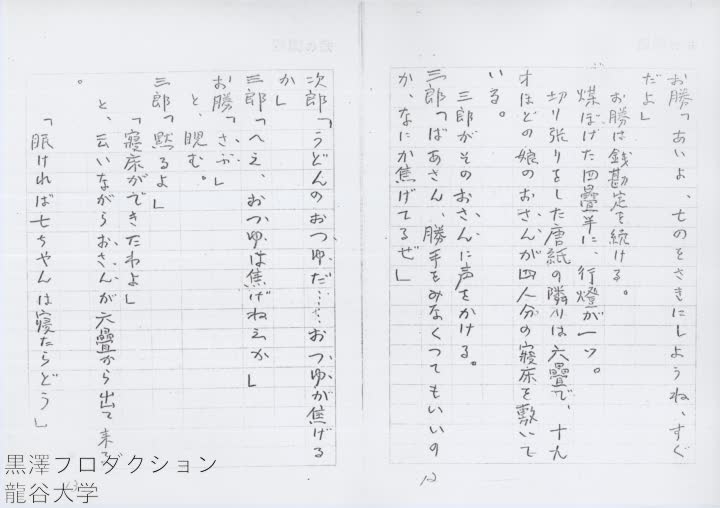 お勝「あいよ、七のをさきにしようね、すぐ
だよ」
お勝は銭勘定を続ける。
煤ぼけた四疊半に、行燈が一ツ。
切り張りをした唐紙の隣りは六疊で、十九
才ほどの娘のおさんが四人分の寝床を敷いて
いる。
三郎がそのおさんに声をかける。
三郎「ばあさん、勝手をみなくつてもいいの
か、なにか焦げてるぜ」
12
次郎「うどんのおつゆだ……おつゆが焦げる
か」
三郎「へえ、おつゆは焦げねえか」
お勝「さぶ」
と、睨む。
三郎「黙るよ」
「寝床ができたわよ」
と、云いながらおさんが六疊から出て来る
。
「眠ければ七ちやんは寝たらどう」
13
黒澤プロダクション
龍谷大学